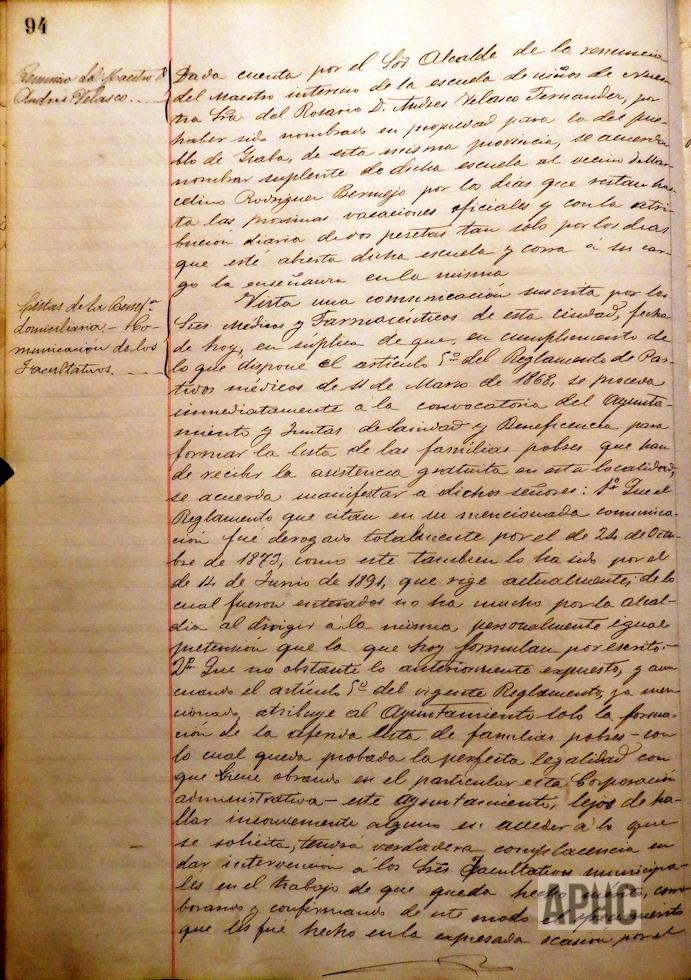 94
Renuncia del Maestro D.
Andrés Velasco.
Dada cuenta por el Sor Alcalde de la renuncia
del Maestro interino de la escuela de niños de Nues-
tra Sra del Rosario D. Andres Velasco Fernandez, por
haber sido nombrado en propiedad para la del pue-
blo de de esta misma provincia, se acuerda
nombrar suplente de dicha escuela al vecino Mar-
celino Rodriguez Bermejo por los dias que restan has-
ta las proximas vacaciones oficiales y con la retri-
bución diaria de dos pesetas tan solo por los dias
que esté abierta dicha escuela y corra á su car-
go la enseñanza en la misma
Listas de la Benefa
domiciliaria - Co-
municación de los
Facultativos.
Vista una comunicación suscrita por los
Sres Medicos y Farmacéuticos de esta ciudad, fecha
de hoy, en suplica de que, en cumplimiento de
lo que dispone el artículo 5º del Reglamento de Par-
tidos médicos de 11 de Marzo de 1868, se proceda
inmediatamente á la convocatoria del Ayunta-
miento y Juntas de Sanidad y Beneficencia para
formar la lista de las familias pobres que han
de recibir la asistencia gratuita en esta localidad,
se acuerda manifestar á dichos señores: 1º Que el
Reglamento que citan en su mencionada comunica-
ción fué derogado totalmente por el de 24 de Octu-
bre de 1873, como este tambien lo ha sido por el
de 14 de Junio de 1891, que rige actualmente; de lo
cual fueron enterados no ha mucho por la Alcal-
dia al dirigir á la misma personalmente igual
pretensión que la que hoy formulan por escrito.-
2º Que no obstante lo anteriormente expuesto, y aun
cuando el artículo 5º del vigente Reglamento, ya men-
cionado, atribuye al Ayuntamiento solo la forma-
ción de la referida lista de familias pobres - con
lo cual queda probada la perfecta legalidad con
que viene obrando en el particular esta Corporación
administrativa - este Ayuntamiento, lejos de ha-
llar inconveniente alguno en acceder á lo que
se solicita, tendrá verdadera complacencia en
dar intervención á los Sres Facultativos municipa-
les en el trabajo de que queda hecho mérito, corro-
borando y confirmando de este modo el
que les fué hecho en la expresada ocasion por el
APHC